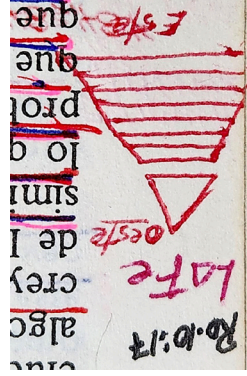 Ro.10:17
La Fe
Oeste
Este
algo
crey
de l
simi
lo q
prot
que
que